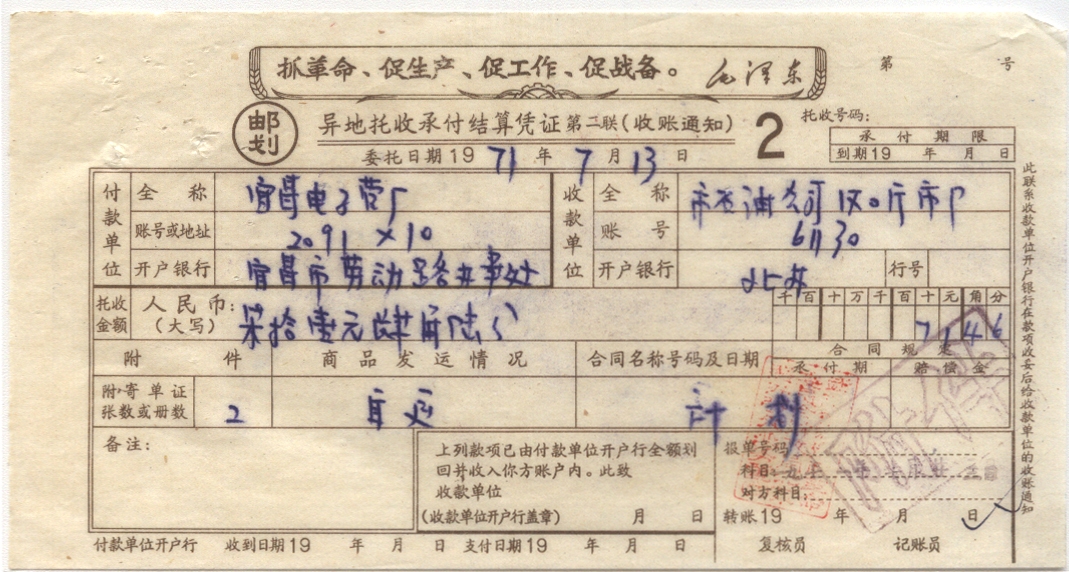 抓革命、促生产、促工作、促战备。 毛泽东
第 号
邮划
异地托收承付结算凭证 第二联(收账通知) 2
托收号码:
承付期限
到期19 年 月 日
委托日期 1971年7月13日
付款单位 全称 宜昌电子管厂
收款单位 全称
账号或地址 2091×10
账号 61130
开户银行 宜昌市劳动路办事处
开户银行
行号
托收金额 人民币:(大写) 柒拾壹元肆角陆分
千百十万千百十元角分
7146
附件 商品发运情况 合同名称号码及日期
合同规定
承付期 赔偿金
附寄单证张数或册数 2 自运 计划
附件
备注:
上列款项已由付款单位开户行全额划
回并收入你方账户内。此致
收款单位
(收款单位开户行盖章) 月 日
报单号码
科目:
对方科目:
转账19 年 月 日
付款单位开户行 收到日期19 年 月 日 支付日期19 年 月 日 复核员 记账员
此联系收款单位开户银行在款项收妥后给收款单位的收账通知